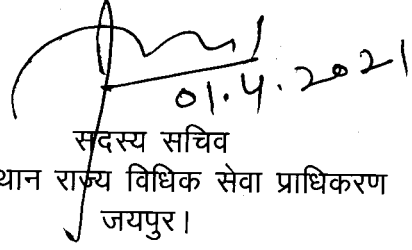 01.4.2021
सदस्य सचिव
थान राज्य विधिक सेवा प्राधिकरण
जयपुर।